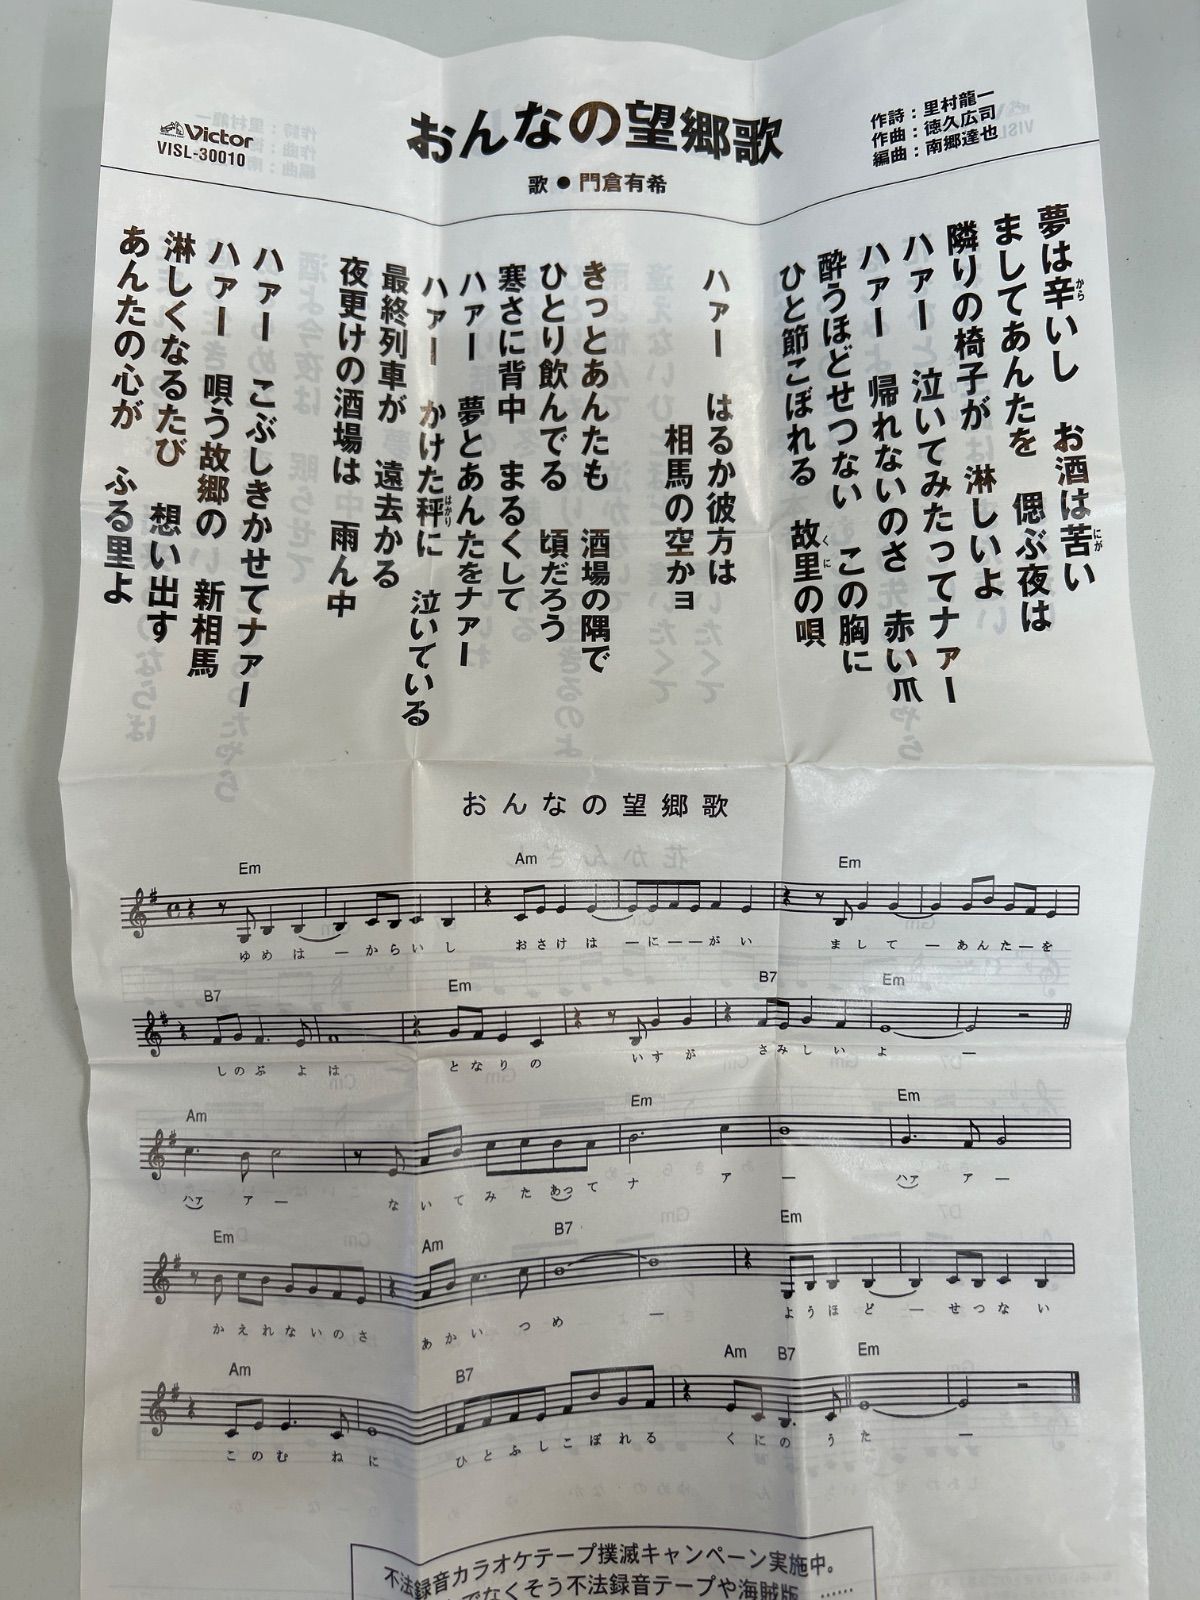 Victor
VISL-30010
おんなの望郷歌
歌●門倉有希
作詩：里村龍一
作曲：徳久広司
編曲：南郷達也
夢は辛いし　お酒は苦い
から
にが
ましてあんたを　偲ぶ夜は
隣りの椅子が　淋しいよ
ハァー　泣いてみたってナァー
ハァー　帰れないのさ　赤い爪
酔うほどせつない　この胸に
ひと節こぼれる　故里の唄
くに
ハァー　はるか彼方は
相馬の空かョ
きっとあんたも　酒場の隅で
ひとり飲んでる　頃だろう
寒さに背中　まるくして
ハァー　夢とあんたをナァー
ハァー　かけた秤に　泣いている
はかり
最終列車が　遠去かる
夜更けの酒場は　雨ん中
ハァー　こぶしきかせてナァー
ハァー　唄う故郷の　新相馬
淋しくなるたび　想い出す
あんたの心が　ふる里よ
おんなの望郷歌
Em Am Em
ゆめは ー からいし おさけは ー に ー ー がい まして ー あんた ー を
B7 Em B7 Em
しのぶ よは となりの いすが さみしい よ ー
Am Em Em
ハァ ア ー ないてみたあってナ ア ー ハァ ア ー
Em Am B7 Em
かえれないのさ あかい つ め ー ようほど ー せつない
Am B7 Am B7 Em
このむ ねに ひとふしこぼれる くにのうた ー
不法録音カラオケテープ撲滅キャンペーン実施中。
でなくそう不法録音テープや海賊版……